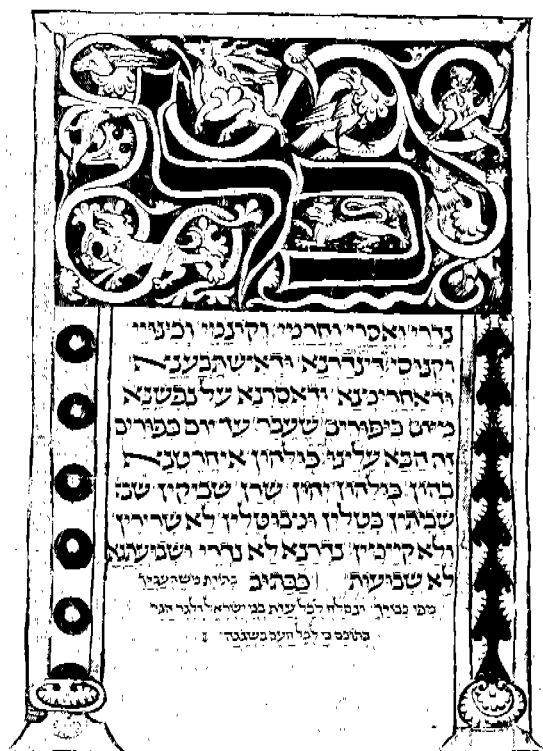 כל
נדרי ואסרי וחרמי וקונמי וכינויי
וקנוסי דינדרנא ודאישתבענא
ודאחרימנא ודאסרנא על נפשנא
מיום כיפורים שעבר עד יום כפורים
זה הבא עלינו כולהון איחרטנא
בהון כולהון יהון שרן שביקין שבי
שביתין בטלין ומבוטלין לא שרירין
ולא קיימין נדרנא לא נדרי ושבועתנא
לא שבועות ככתוב בתורת משה עבדך
מפי כבודך ונסלח לכל עדת בני ישראל ולגר הגר
בתוכם כי לכל העם בשגגה